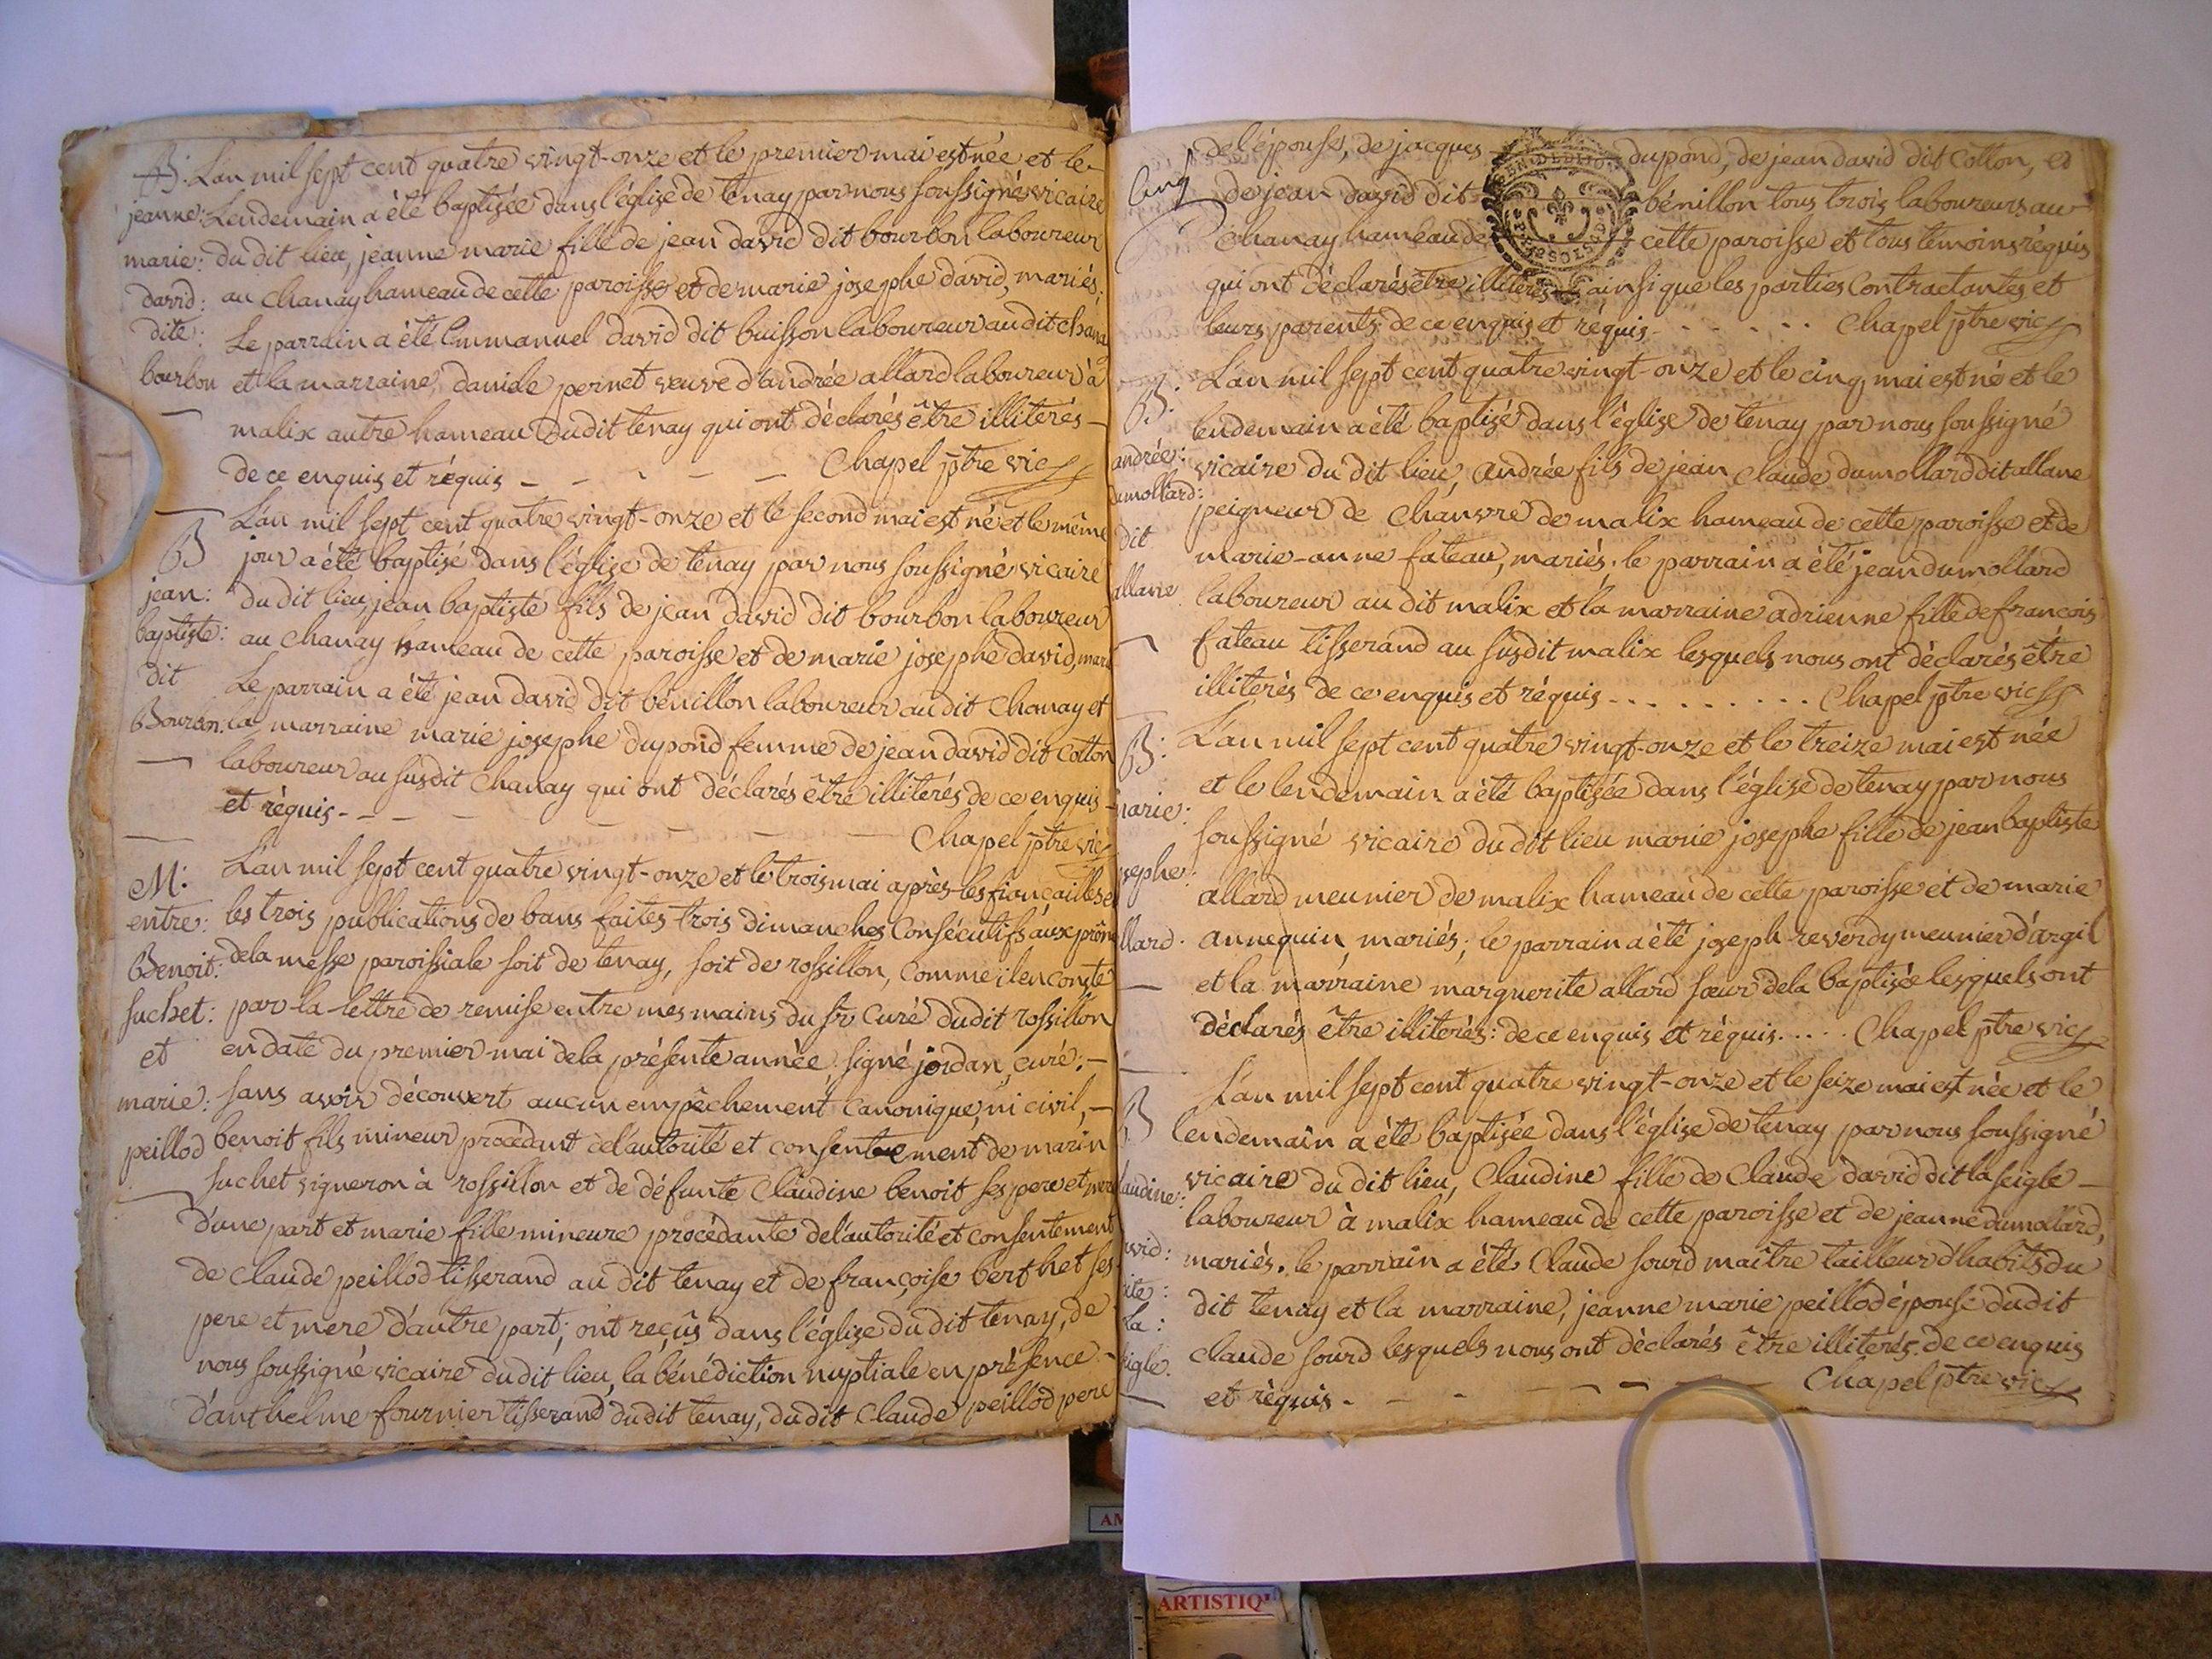 B: L'an mil sept cent quatre vingt-onze et le premier mai est née et le
jeanne: Lendemain a été baptisée dans l'église de tenay par nous soussigné vicaire
marie: du dit lieu, jeanne marie fille de jean david dit bourbon laboureur
david: au chanay hameau de cette paroisse et de marie josephe david, mariés;
dite: Le parrain a été Emmanuel david dit buisson laboureur audit chana
bourbon et la marraine, danide pernet veuve d'andrée allard laboureur à
malix autre hameau dudit tenay qui ont déclarés être illiterés -
de ce enquis et réquis - - - - - Chapel ptre vic
L'an mil sept cent quatre vingt-onze et le second mai est né et le même
B jour a été baptisé dans l'église de tenay par nous soussigné vicaire
jean: du dit lieu, jean baptiste fils de jean david dit bourbon laboureur
baptiste: au chanay hameau de cette paroisse et de marie josephe david, mari
dit Le parrain a été jean david dit bénillon laboureur audit Chanay et
Bourbon: la marraine marie josephe dupond femme de jean david dit Colton
laboureur au susdit Chanay qui ont déclarés être illiterés de ce enquis -
et réquis - - - - - - - - Chapel ptre vic
M: L'an mil sept cent quatre vingt-onze et le trois mai après les fiançailles e
entre: les trois publications de bans faites trois dimanches Consécutifs aux prône
Benoit: dela messe paroissiale soit de tenay, soit de rossillon, comme il en conste
suchet: par la lettre de remise entre mes mains du sr Curé dudit rossillon
et en date du premier mai dela présente année, signé jordan, curé: -
marie: sans avoir découvert aucun empêchement Canonique, ni civil, -
peillod benoit fils mineur procédant del'autorité et consentement de marin
suchet vigneron à rossillon et de défunte Claudine benoit ses pere et mere
d'une part et marie fille mineure procédante del'autorité et consentement
de claude peillod tisserand au dit tenay et de françoise berthet ses
pere et mere d'autre part; ont reçûs dans l'église dudit tenay, de
nous soussigné vicaire dudit lieu, la bénédiction nuptiale en présence -
d'anthelme fournier tisserand dudit tenay, dudit Claude peillod pere
Cinq
del'épouse, de jacques dupond, de jean david dit Colton, et
de jean david dit bénillon tous trois laboureurs au -
Chanay hameau de cette paroisse et tous temoins réquis
qui ont déclarés être illiterés ainsi que les parties Contractantes et
leurs parents: de ce enquis et réquis - - - - - - Chapel ptre vic
B: L'an mil sept cent quatre vingt-onze et le cinq mai est né et le
lendemain a été baptisé dans l'église de tenay par nous soussigné
andrée: vicaire du dit lieu, andrée fils de jean claude dumollard dit allane
dumollard: peigneur de chanvre de malix hameau de cette paroisse et de
dit marie-anne fateau, mariés. le parrain a été jean dumollard
allane laboureur au dit malix et la marraine adrienne fille de francois
fateau tisserand au susdit malix lesquels nous ont déclarés être
illiterés de ce enquis et réquis - - - - - - - - - Chapel ptre vic
B: L'an mil sept cent quatre vingt-onze et le treize mai est née
et le lendemain a été baptisée dans l'église de tenay par nous
marie: soussigné vicaire du dit lieu marie josephe fille de jean baptiste
josephe: allard meunier de malix hameau de cette paroisse et de marie
llard. annequin, mariés; le parrain a été joseph reverdy meunier d'argil
et la marraine marguerite allard sœur dela baptisée lesquels ont
déclarés être illiterés: de ce enquis et réquis..... Chapel ptre vic
L'an mil sept cent quatre vingt-onze et le seize mai est née et le
B lendemain a été baptisée dans l'église de tenay par nous soussigné
laudine: vicaire du dit lieu, Claudine fille de Claude david dit la seigle -
laboureur à malix hameau de cette paroisse et de jeanne dumollard,
avid: mariés. le parrain a été Claude sourd maître tailleur d'habits du
ite: dit tenay et la marraine, jeanne marie peillod épouse dudit
la: claude sourd lesquels nous ont déclarés être illiterés. de ce enquis
eigle. et réquis - - - - - - Chapel ptre vic
ARTISTIQ